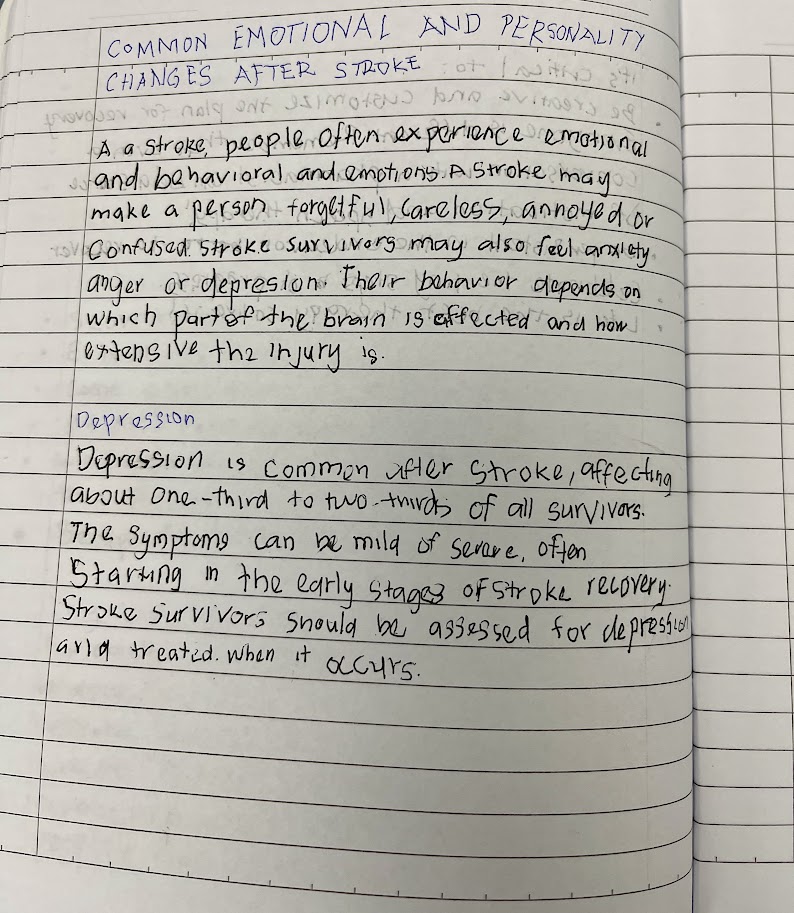 COMMON EMOTIONAL AND PERSONALITY
CHANGES AFTER STROKE
A a stroke, people often experience emotional
and behavioral and emotions. A stroke may
make a person forgetful, careless, annoyed or
confused. Stroke survivors may also feel anxiety
anger or depresion. Their behavior depends on
which part of the brain is affected and how
extensive the injury is.
Depression
Depression is common after stroke, affecting
about one-third to two-thirds of all survivors.
The symptoms can be mild of severe, often
starting in the early stages of stroke recovery.
Stroke survivors should be assessed for depression
and treated. when it occurs.